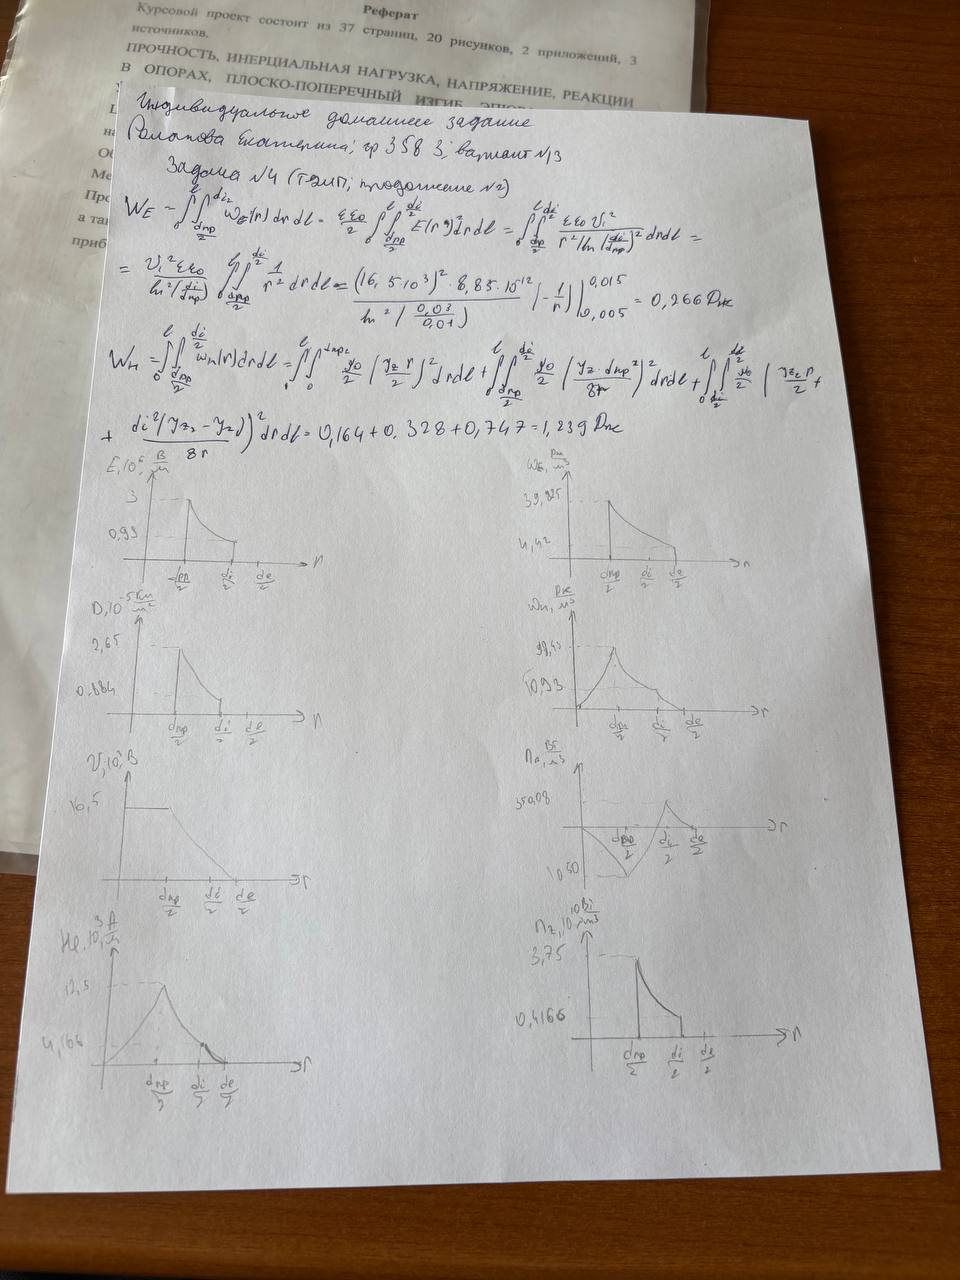 Реферат
Курсовой проект состоит из 37 страниц, 20 рисунков, 2 приложений, 3
источников.
ПРОЧНОСТЬ, ИНЕРЦИАЛЬНАЯ НАГРУЗКА, НАПРЯЖЕНИЕ, РЕАКЦИИ
В ОПОРАХ, ПЛОСКО-ПОПЕРЕЧНЫЙ ИЗГИБ,
Индивидуальное домашнее задание
Екатерина, гр 3583, вариант №13
Задача №4 (ТЭМП, продолжение №2)
W_E = ∫₀^l ∫_{dпр/2}^{di/2} w_E(r) dr dl = εε₀/2 ∫₀^l ∫_{dпр/2}^{di/2} E(r)² dr dl = ∫₀^l ∫_{dпр/2}^{di/2} εε₀ U₁² / (r² ln(di/dпр)²) dr dl =
= U₁² εε₀ / ln²(di/dпр) ∫₀^l ∫_{dпр/2}^{di/2} 1/r² dr dl = (16,5·10³)² · 8,85·10⁻¹² / ln²(0,03/0,01) (-1/r) |_{0,005}^{0,015} = 0,266 Дж
W_м = ∫₀^l ∫_{dпр/2}^{di/2} w_м(r) dr dl = ∫₀^l ∫₀^{dпр/2} μ₀/2 (J_z r/2)² dr dl + ∫₀^l ∫_{dпр/2}^{di/2} μ₀/2 (J_z · dпр²/8r)² dr dl + ∫₀^l ∫_{di/2}^{de/2} μ₀/2 (J_{z2} r/2 +
+ di² (J_{z2} - J_z)/8r)² dr dl = 0,164 + 0,328 + 0,747 = 1,239 Дж
E, 10⁶, В/м
3
0,99
dпр/2 di/2 de/2 r
w_E, Дж/м³
39,825
4,42
dпр/2 di/2 de/2 r
D, 10⁻⁵ Кл/м²
2,65
0,884
dпр/2 di/2 de/2 r
w_м, Дж/м³
98,43
10,93
dпр/2 di/2 de/2 r
U, 10³, В
16,5
dпр/2 di/2 de/2 r
Вт/м²
350,08
1050
dпр/2 di/2 de/2 r
10³, А/м
12,5
4,166
dпр/2 di/2 de/2 r
П_z, 10¹⁰
3,75
0,4166
dпр/2 di/2 de/2 r